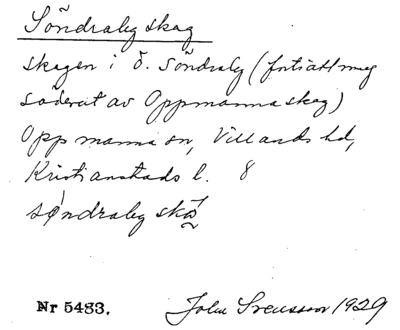 Söndraby skog
Skogen i ö. Söndraby (fortsättning
söderut av Oppmanna skog)
Oppmanna sn, Villands hd,
Kristianstads l. 8
söndraby
Nr 5483. John Svensson 1929